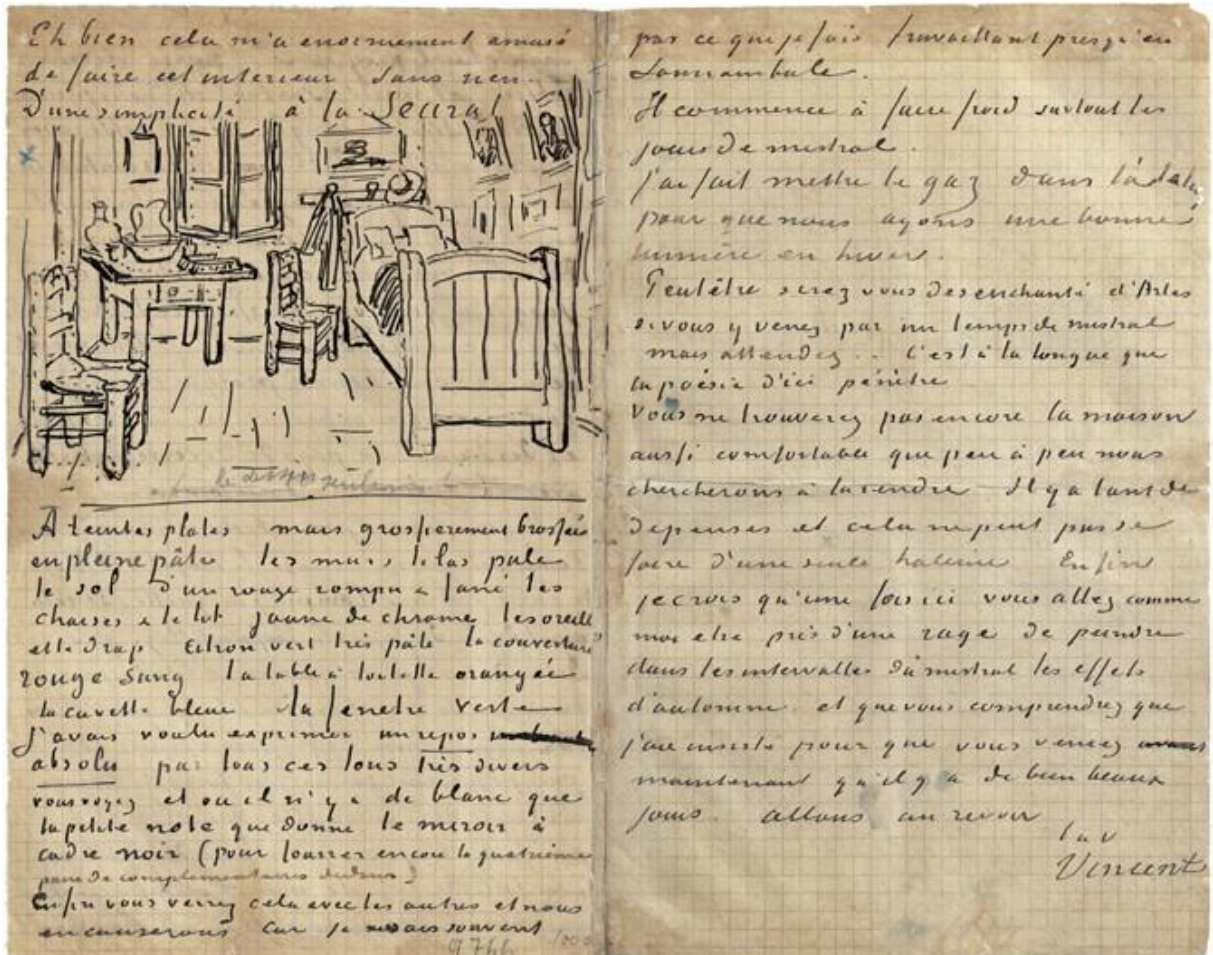 Eh bien cela m'a enormement amusé
de faire cet interieur sans rien.
D'une simplicité à la Seurat
le dessin seulement
A teintes plates mais grossierement brossées
en pleine pâte les murs lilas pale
le sol d'un rouge rompu & fané les
chaises & le lit jaune de chrome les oreill
et le drap citron vert très pâle la couverture
rouge sang la table à toilette orangée
la cuvette bleue la fenetre verte
J'avais voulu exprimer un repos
absolu par tous ces tons très divers
vous voyez et ou il n'y a de blanc que
la petite note que donne le miroir à
cadre noir (pour fourrer encore la quatrième
paire de complementaires dedans)
Enfin vous verrez cela avec les autres et nous
en causerons car je sais souvent
9766
pas ce que je fais travaillant presqu'en
somnambule.
Il commence à faire froid surtout les
jours de mistral.
j'ai fait mettre le gaz dans l'atelier
pour que nous ayons une bonne
lumière en hiver.
Peutêtre serez vous desenchanté d'Arles
si vous y venez par un temps de mistral
mais attendez .. C'est à la longue que
la poësie d'ici pénètre
Vous ne trouverez pas encore la maison
aussi comfortable que peu à peu nous
chercherons à la rendre Il y a tant de
depenses et cela ne peut pas se
faire d'une seule haleine Enfin
je crois qu'une fois ici vous allez comme
moi etre pris d'une rage de peindre
dans les intervalles du mistral les effets
d'automne. et que vous comprendrez que
j'aie insisté pour que vous veniez
maintenant qu'il y a de bien beaux
jours. allons au revoir
t. a. v
Vincent